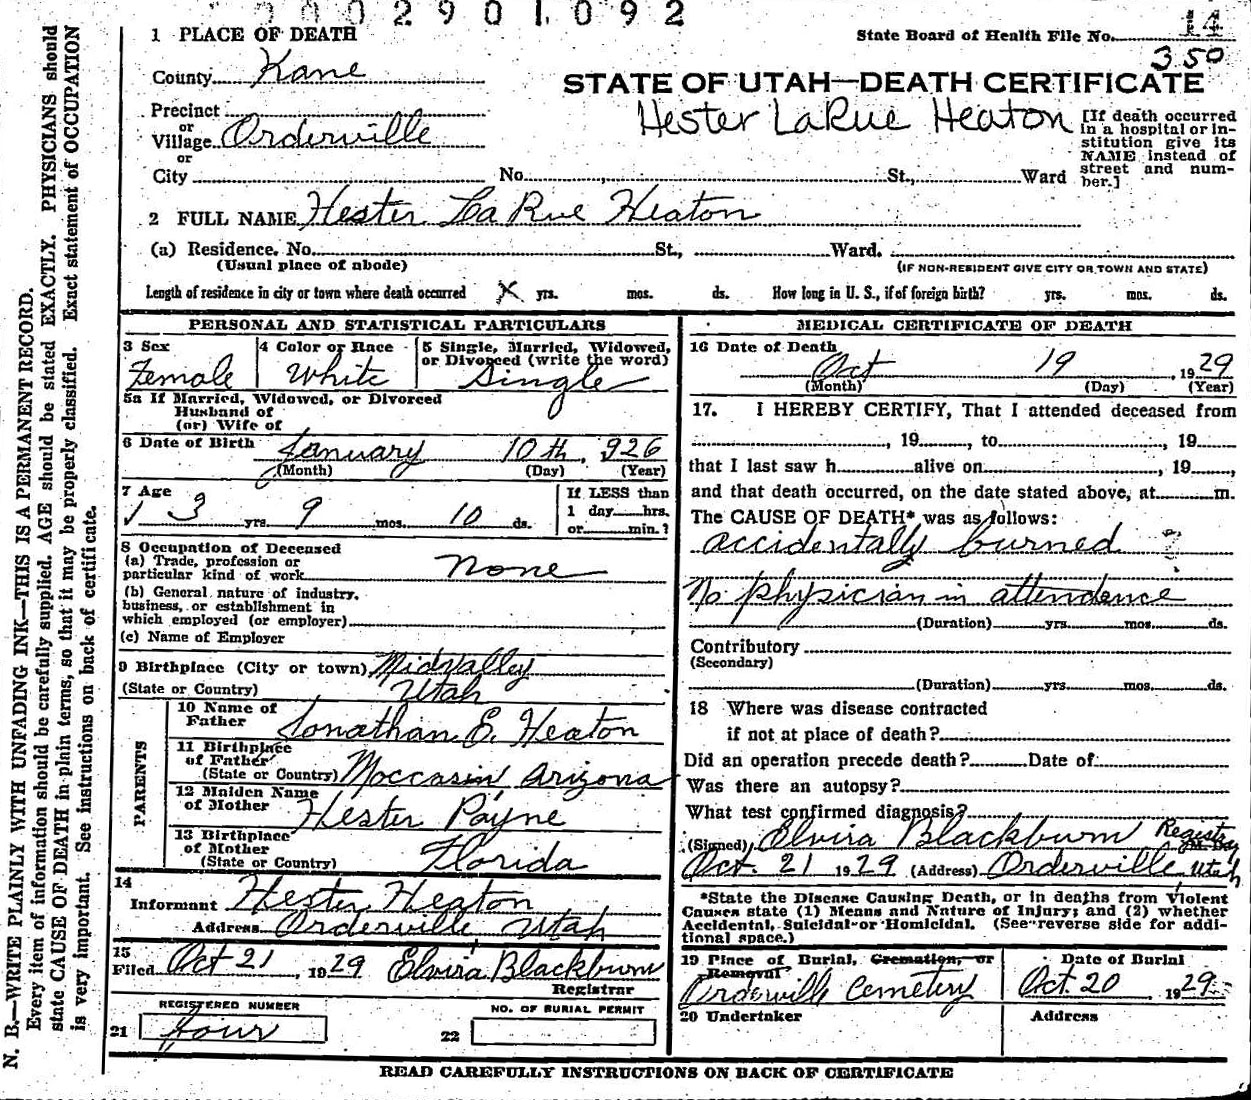 002901092
1 PLACE OF DEATH
State Board of Health File No. 14
350
County Kane
STATE OF UTAH—DEATH CERTIFICATE
Hester LaRue Heaton
Precinct
or
Village Orderville
or
City No. St., Ward
[If death occurred
in a hospital or in-
stitution give its
NAME instead of
street and num-
ber.]
2 FULL NAME Hester La Rue Heaton
(a) Residence. No. St., Ward.
(Usual place of abode) (IF NON-RESIDENT GIVE CITY OR TOWN AND STATE)
Length of residence in city or town where death occurred X yrs. mos. ds. How long in U. S., if of foreign birth? yrs. mos. ds.
PERSONAL AND STATISTICAL PARTICULARS
3 Sex Female
4 Color or Race White
5 Single, Married, Widowed,
or Divorced (write the word)
Single
5a If Married, Widowed, or Divorced
Husband of
(or) Wife of
6 Date of Birth January 10th, 926
(Month) (Day) (Year)
7 Age
3 yrs. 9 mos. 10 ds.
If LESS than
1 day hrs.
or min.?
8 Occupation of Deceased
(a) Trade, profession or
particular kind of work None
(b) General nature of industry,
business, or establishment in
which employed (or employer)
(c) Name of Employer
9 Birthplace (City or town) Midvalley
(State or Country) Utah
PARENTS
10 Name of
Father Jonathan E. Heaton
11 Birthplace
of Father
(State or Country) Moccasin, Arizona
12 Maiden Name
of Mother Hester Payne
13 Birthplace
of Mother
(State or Country) Florida
14
Informant Hester Heaton
Address Orderville Utah
15
Filed Oct 21, 1929 Elvira Blackburn
Registrar
REGISTERED NUMBER
21 Four
NO. OF BURIAL PERMIT
22
MEDICAL CERTIFICATE OF DEATH
16 Date of Death
Oct 19, 1929
(Month) (Day) (Year)
17. I HEREBY CERTIFY, That I attended deceased from
, 19, to, 19
that I last saw h alive on, 19,
and that death occurred, on the date stated above, at m.
The CAUSE OF DEATH* was as follows:
accidentally burned
No physician in attendence
(Duration) yrs. mos. ds.
Contributory
(Secondary)
(Duration) yrs. mos. ds.
18 Where was disease contracted
if not at place of death?
Did an operation precede death? Date of
Was there an autopsy?
What test confirmed diagnosis?
(Signed) Elvira Blackburn
Oct. 21 1929 (Address) Orderville Utah
*State the Disease Causing Death, or in deaths from Violent
Causes state (1) Means and Nature of Injury; and (2) whether
Accidental, Suicidal or Homicidal. (See reverse side for addi-
tional space.)
19 Place of Burial, Cremation, or
Removal
Orderville Cemetery
Date of Burial
Oct. 20 1929
20 Undertaker
Address
READ CAREFULLY INSTRUCTIONS ON BACK OF CERTIFICATE
N. B.—WRITE PLAINLY WITH UNFADING INK—THIS IS A PERMANENT RECORD.
Every item of information should be carefully supplied. AGE should be stated EXACTLY. PHYSICIANS should
state CAUSE OF DEATH in plain terms, so that it may be properly classified. Exact statement of OCCUPATION
is very important. See instructions on back of certificate.